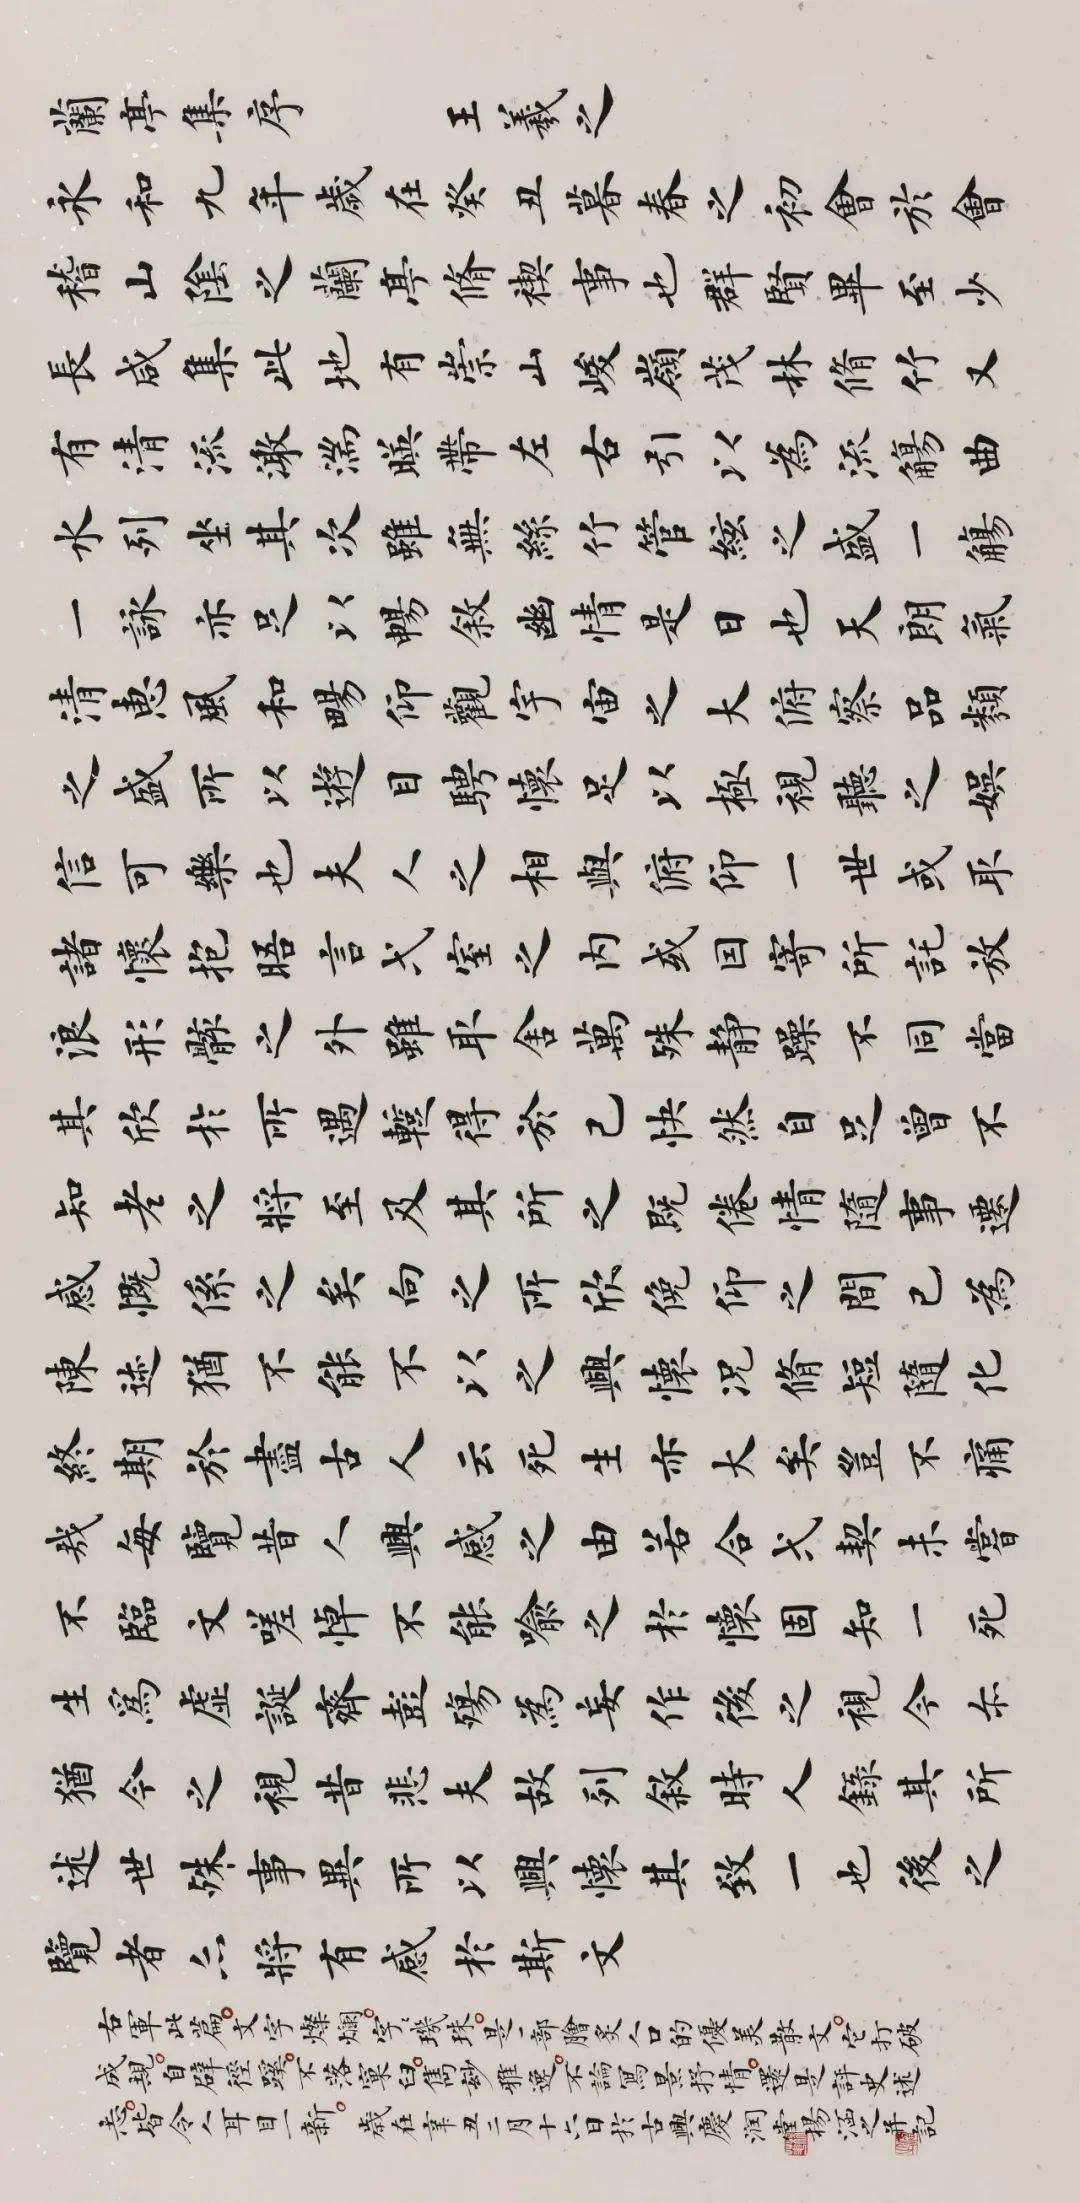 蘭亭集序 王羲之
永和九年歲在癸丑暮春之初會於會
稽山陰之蘭亭脩禊事也群賢畢至少
長咸集此地有崇山峻嶺茂林脩竹又
有清流激湍暎帶左右引以為流觴曲
水列坐其次雖無絲竹管絃之盛一觴
一詠亦足以暢敘幽情是日也天朗氣
清惠風和暢仰觀宇宙之大俯察品類
之盛所以遊目騁懷足以極視聽之娛
信可樂也夫人之相與俯仰一世或取
諸懷抱晤言弌室之內或囙寄所託放
浪形骸之外雖取舍萬殊静躁不同當
其欣扵所遇蹔得於己快然自足曾不
知老之將至及其所之既倦情隨事遷
感慨係之矣向之所欣俛仰之間已為
陳迹猶不能不以之興懷況脩短隨化
終期於盡古人云死生亦大矣豈不痛
哉每覽昔人興感之由若合弌契未嘗
不臨文嗟悼不能喻之扵懷固知一死
生爲虛誕齊彭殤為妄作後之視今亦
猶今之視昔悲夫故列敘時人錄其所
述世殊事異所以興懷其致一也後之
覽者亦將有感扵斯文
右軍此篇。文字燦爛。字字璣珠。是一部膾炙人口的優美散文。它打破
成規。自辟徑蹊。不落窠臼。雋妙雅逸。不論寫景抒情。還是評史述
志。皆令人耳目一新。歲在辛丑二月十六日扵古興慶潤堂楊之并記